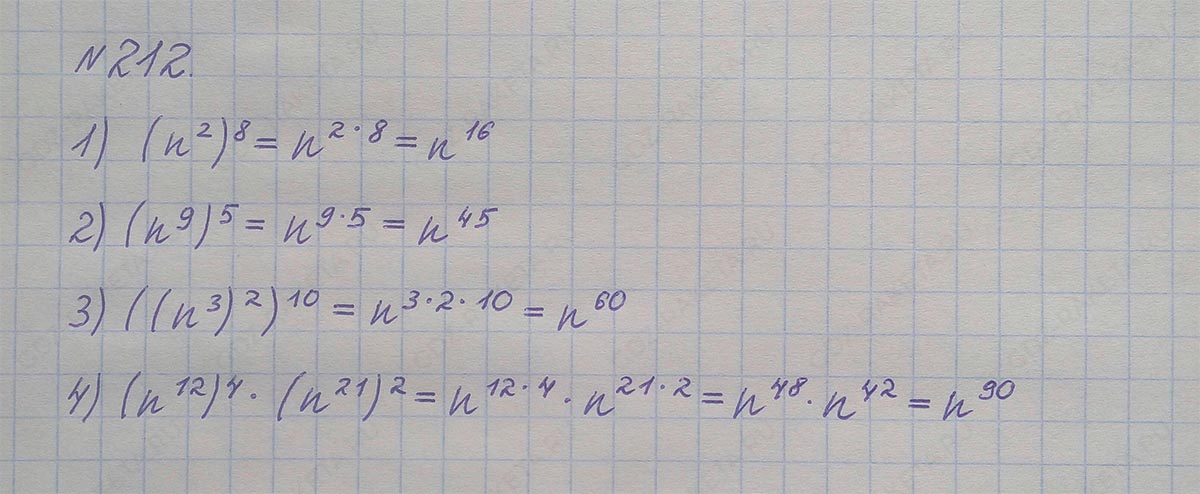 N212.
1) (n²)⁸ = n²·⁸ = n¹⁶
2) (n⁹)⁵ = n⁹·⁵ = n⁴⁵
3) ((n³)²)¹⁰ = n³·²·¹⁰ = n⁶⁰
4) (n¹²)⁴ · (n²¹)² = n¹²·⁴ · n²¹·² = n⁴⁸ · n⁴² = n⁹⁰